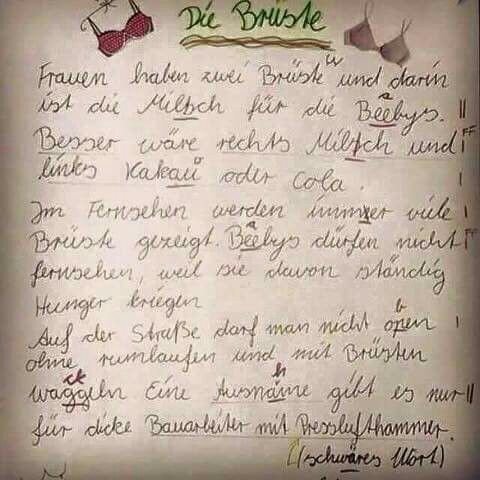 Die Brüste
Frauen haben zwei Brüste und darin
ist die Miltsch für die Beebys.
Besser wäre rechts Miltsch und
links Kakau oder Cola.
Im Fernsehen werden immer viele
Brüste gezeigt. Beebys dürfen nicht
fernsehen, weil sie davon ständig
Hunger kriegen
Auf der Straße darf man nicht open
ohne rumlaufen und mit Brüsten
waggeln Eine Ausnäme gibt es nur
für dicke Bauarbeiter mit Presslufthammer.
(schwäres Wort)